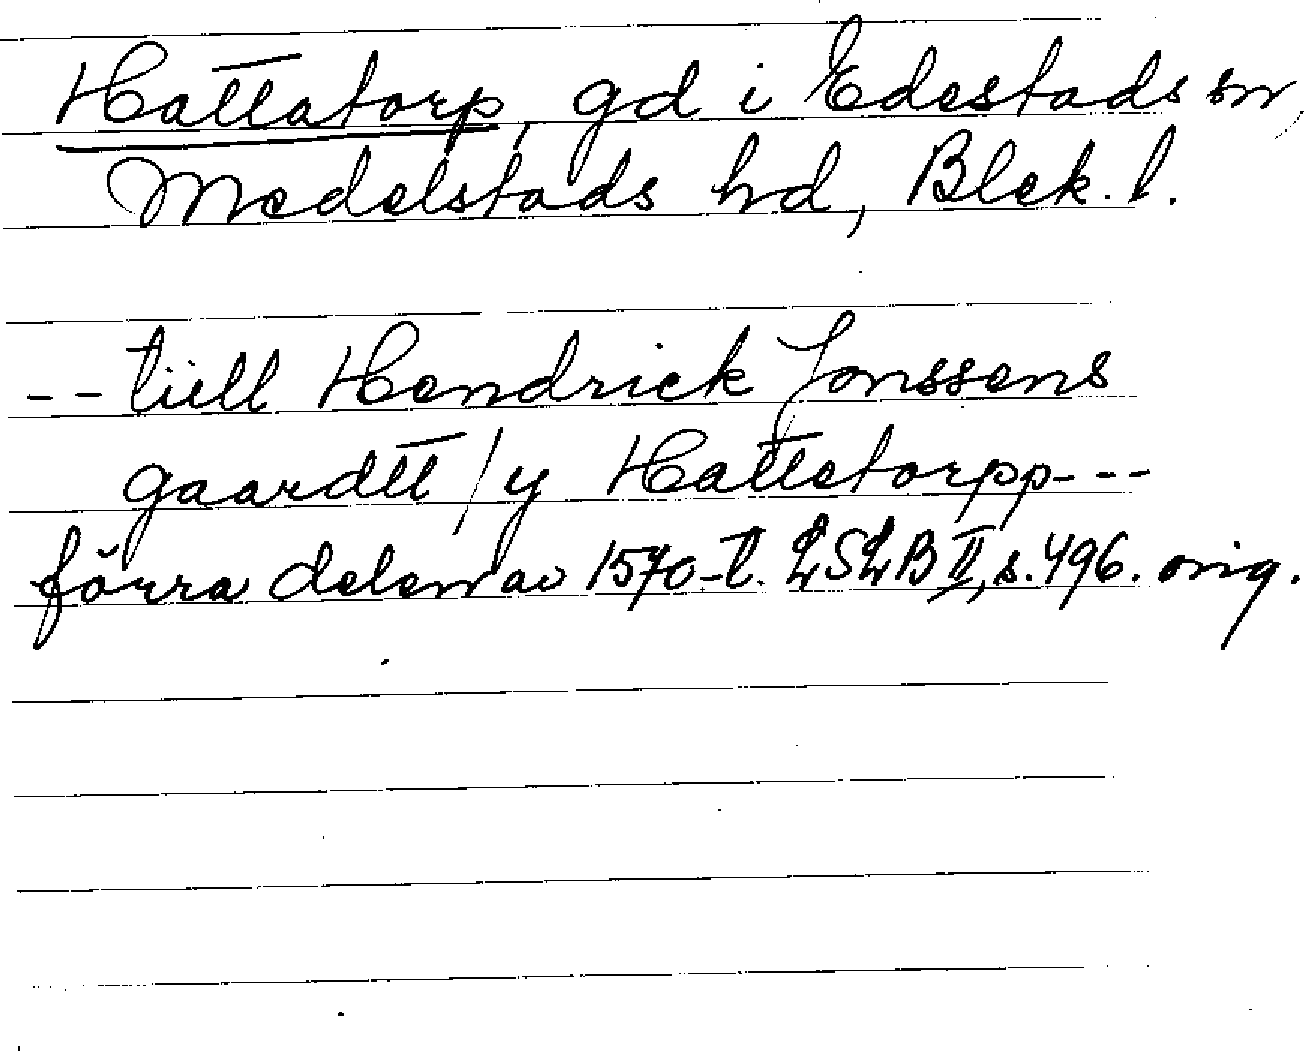 Hattatorp, gd i Edestads sn,
Medelstads hd, Blek. l.
-- tiill Hendrick Jonssens
gaardtt / y Hattetorpp ---
förra delen av 1570-t. LSLB II, s. 496. orig.